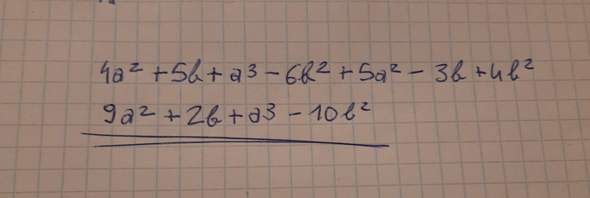 4a² + 5b + a³ - 6b² + 5a² - 3b + 4b²
9a² + 2b + a³ - 10b²